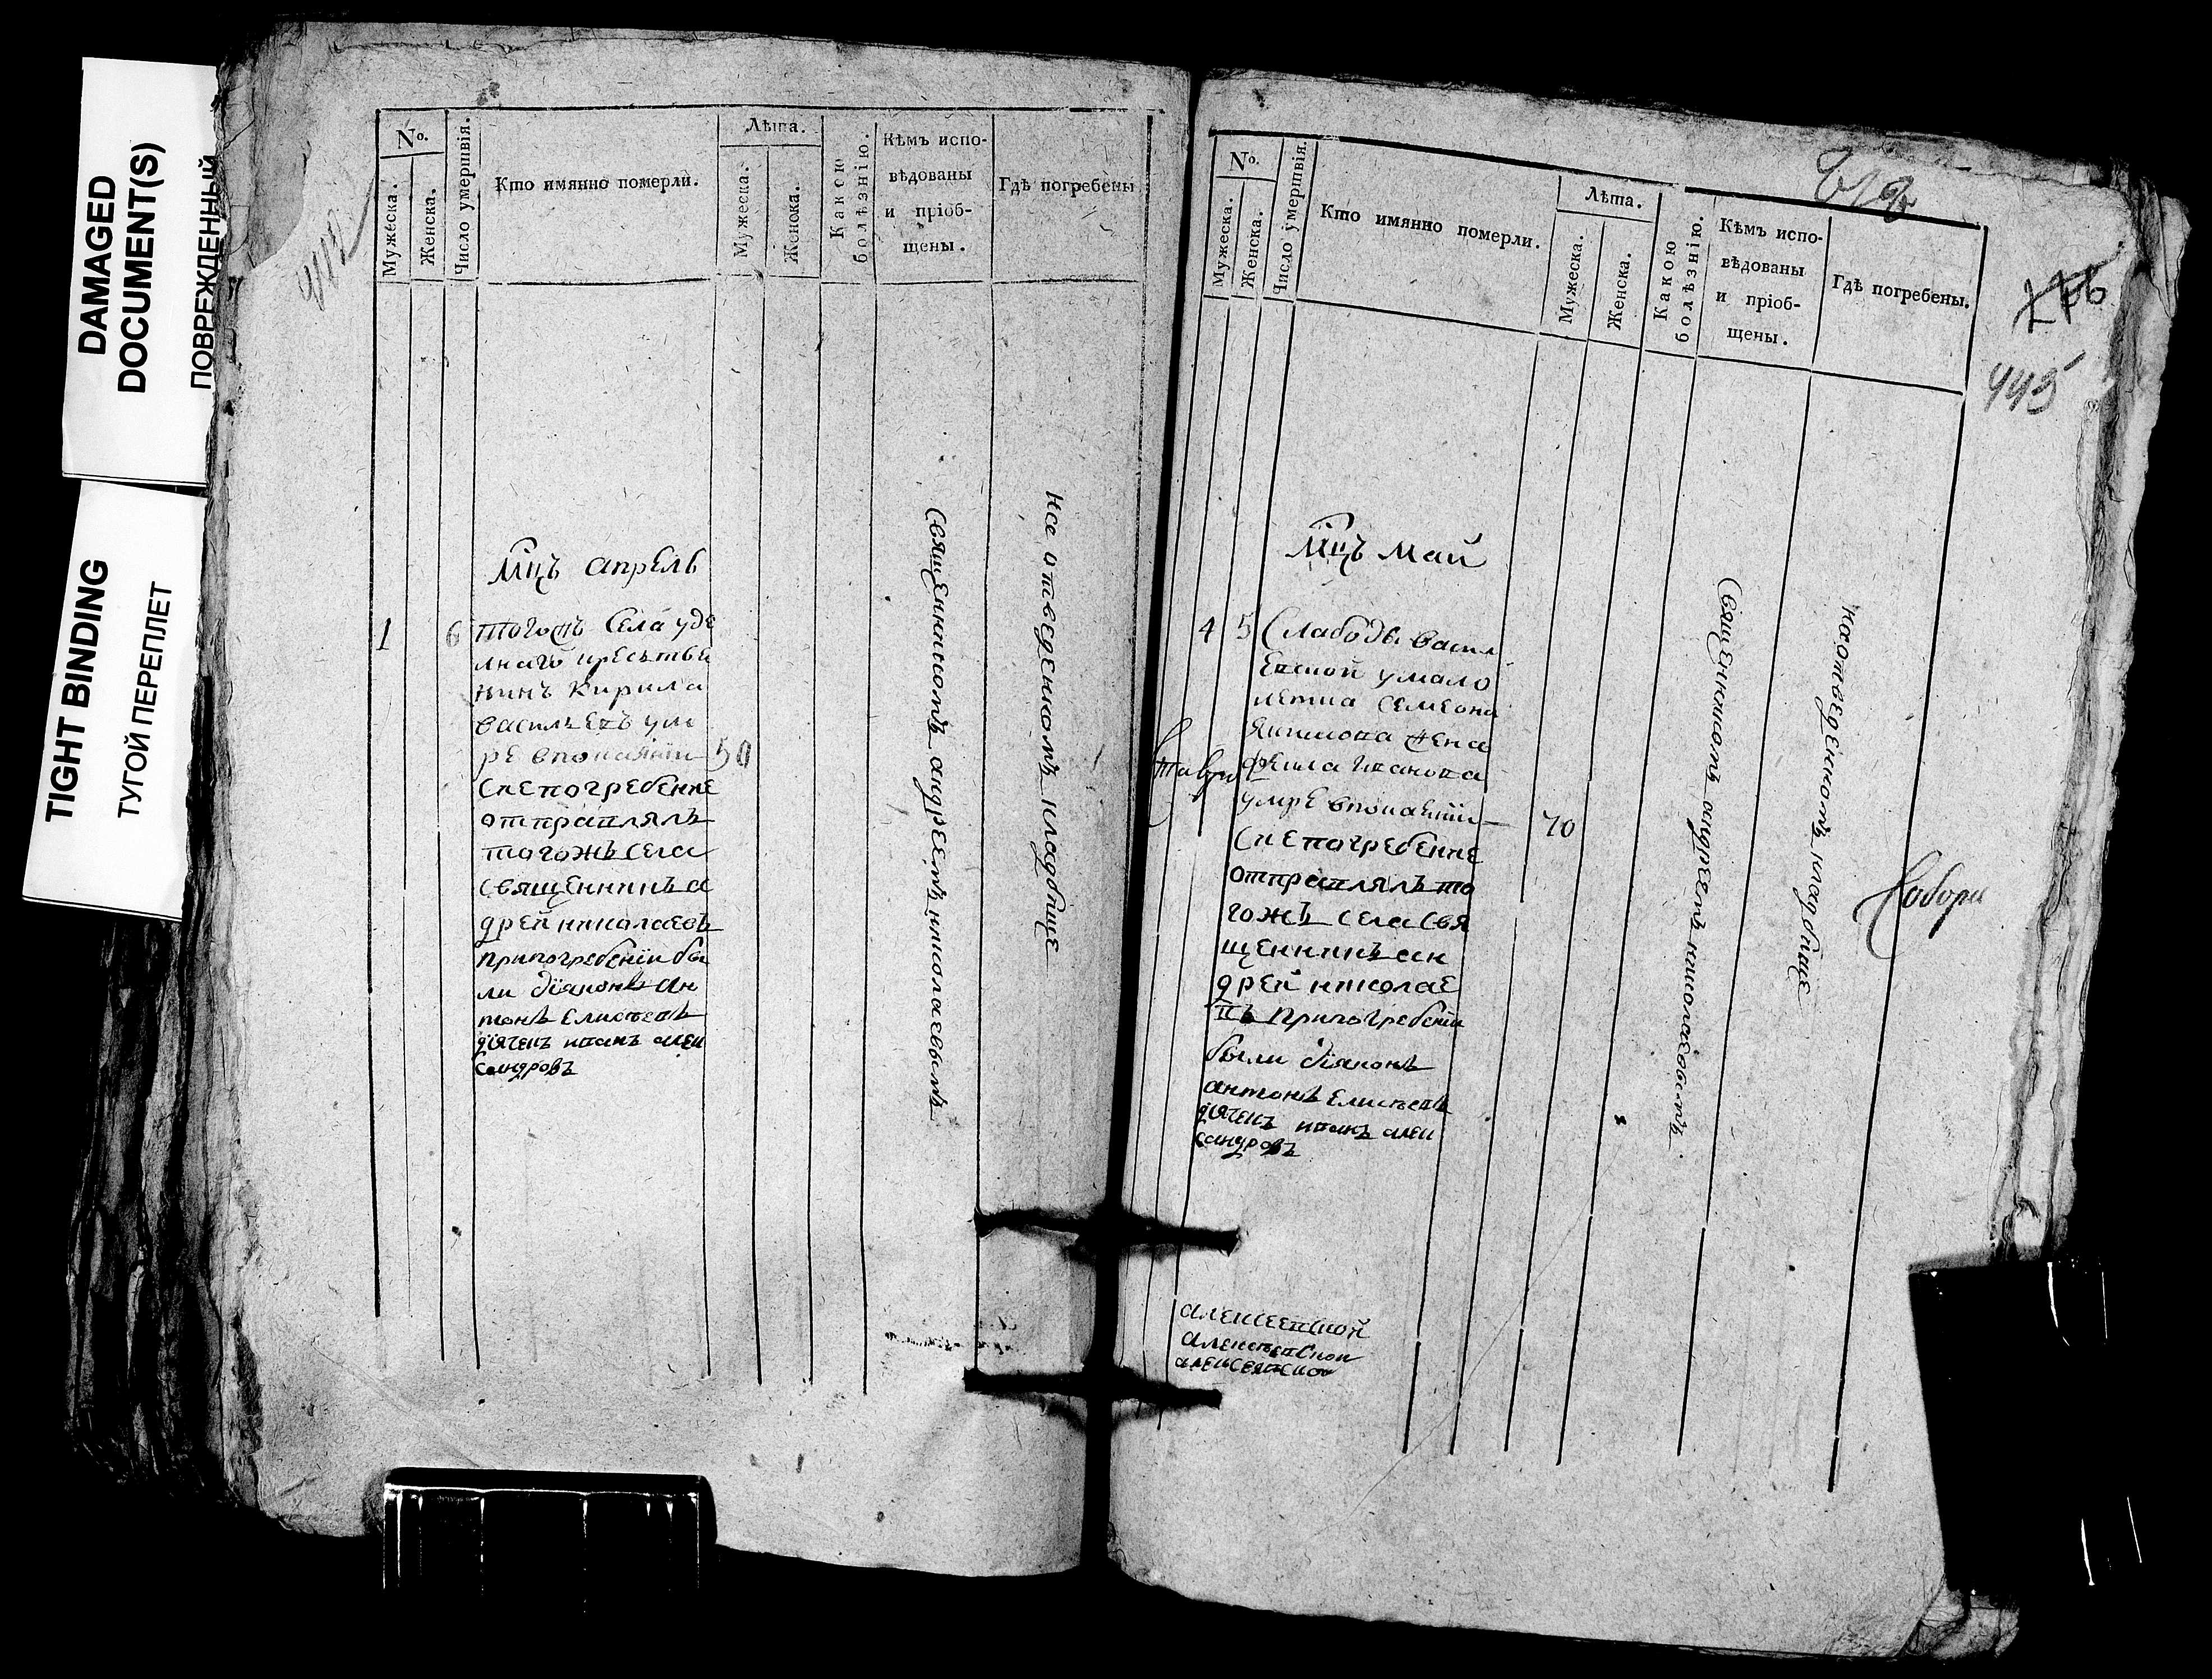 DAMAGED
DOCUMENT(S)
ПОВРЕЖДЕННЫЙ
TIGHT BINDING
ТУГОЙ ПЕРЕПЛЕТ
No.
Мужеска.
Женска.
Число умершвія.
Кто имянно померли.
Лѣта.
Мужеска.
Женска.
Какою
болѣзнію.
Кѣмъ испо-
вѣдованы
и пріоб-
щены.
Гдѣ погребены
мцъ апрель
1 6 тогожъ села уде
лнаго кресьтья
нинъ Кирила
василъевъ ум
ре впокаянии 50
сие погребение
отправлялъ
тогожъ села
священникъ а
дрей николаевъ
при погребении бы
ли диаконъ ан
тонъ Елисеевъ
дячекъ иванъ алек
сандровъ
священникомъ андреемъ николаевымъ
на отведенномъ кладбище
No.
Мужеска.
Женска.
Число умершвія.
Кто имянно померли.
Лѣта.
Мужеска.
Женска.
Какою
болѣзнію.
Кѣмъ испо-
вѣдованы
и пріоб-
щены.
Гдѣ погребены.
445
мцъ май
4 5 Слабоды васил
евской умало
летна семеона
якимова жена
иванова
умре впокаянии 70
сие погребение
отправлялъ то
гожъ села свя
щенникъ ан
дрей николае
въ при погребении
были диаконъ
антонъ елисеевъ
дячекъ иванъ алек
сандровъ
священникомъ андреемъ николаевымъ
на отведенномъ кладбище
собори
алексеевской
алексеевской